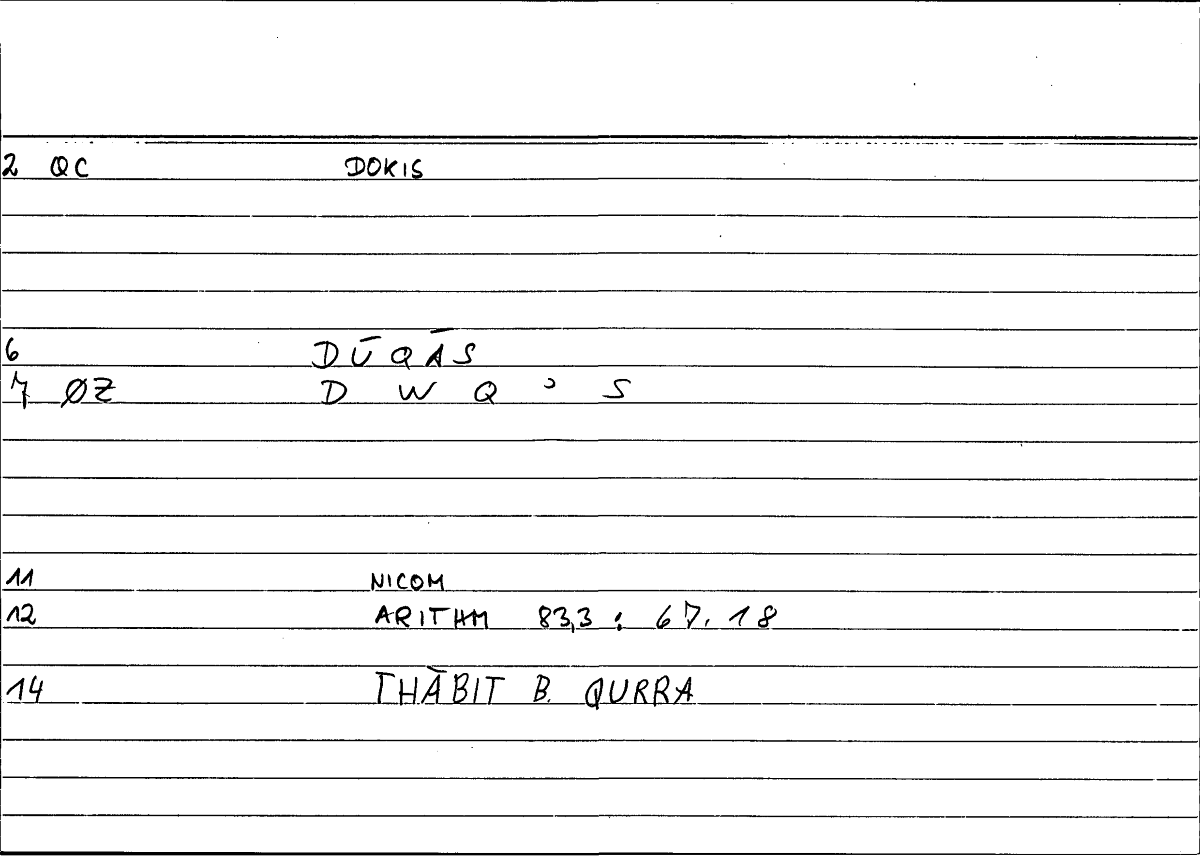 2 QC DOKIS
6 DŪQĀS
7 ØZ D W Q ʾ S
11 NICOM
12 ARITHM 83,3 : 67.18
14 THĀBIT B. QURRA